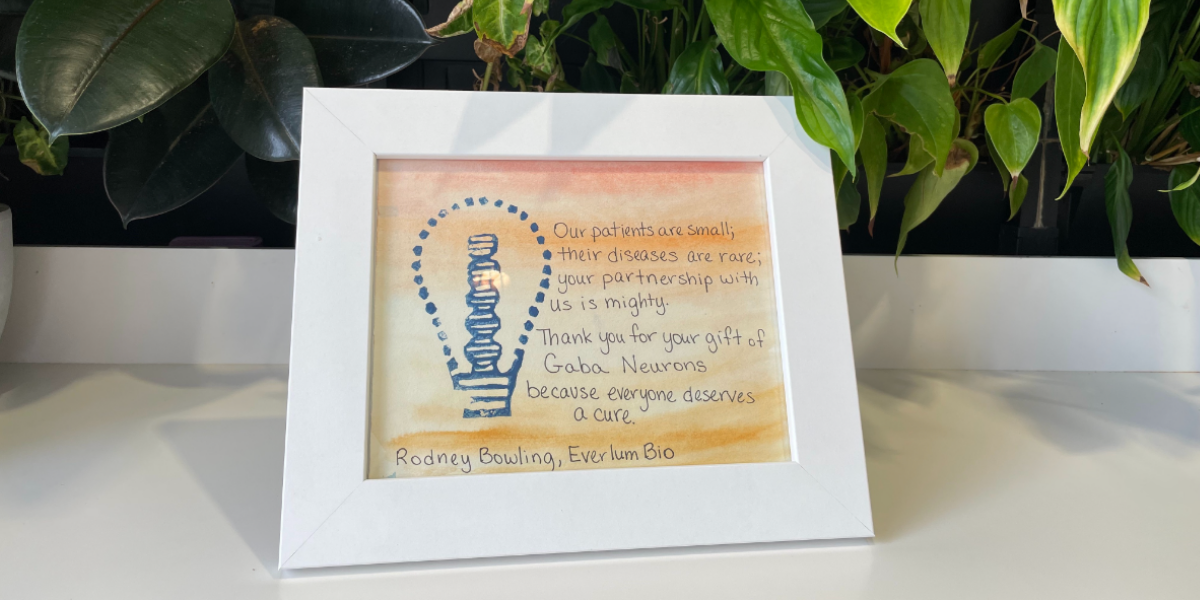 Our patients are small;
their diseases are rare;
your partnership with
us is mighty.
Thank you for your gift of
Gaba Neurons
because everyone deserves
a cure.
Rodney Bowling, Everlum Bio